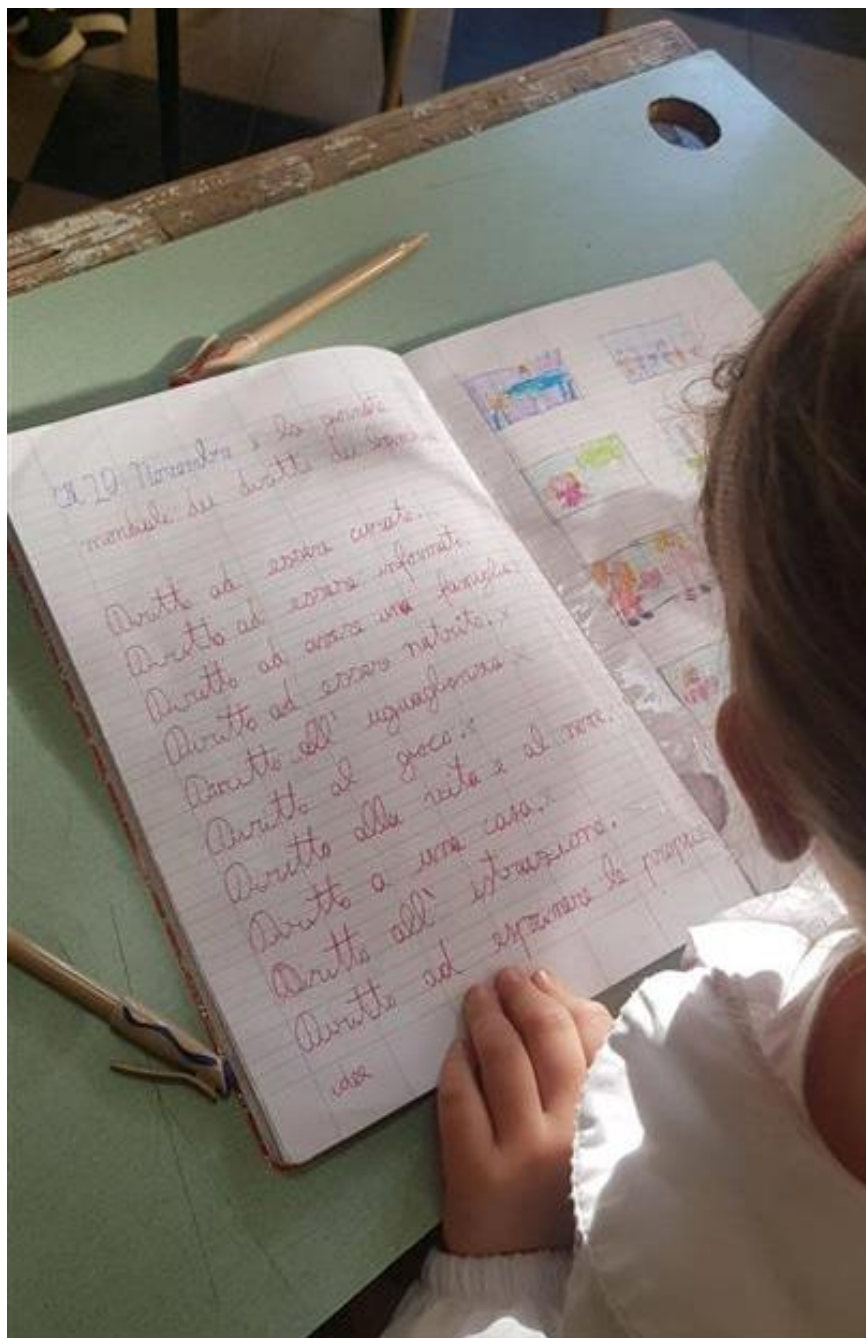 Il 20 Novembre è la giornata
mondiale dei diritti dei
Diritto ad essere curato.
Diritto ad essere informato.
Diritto ad avere una famiglia.
Diritto ad essere nutrito.
Diritto all'uguaglianza
Diritto al gioco.
Diritto alla vita e al nome.
Diritto a una casa.
Diritto all'istruzione.
Diritto ad esprimere le proprie
idee